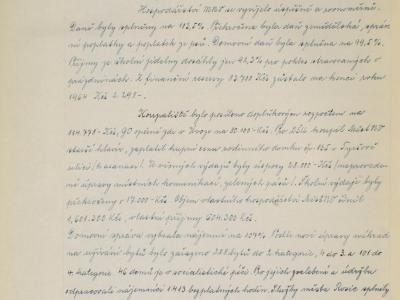 Hospodářství MNV se vyvíjelo úspěšně a rovnoměrně.
Daně byly splněny na 112,5%. Překročena byla daň zemědělská, správní
poplatky a poplatek ze psů. Domovní daň byla splněna na 99,5%.
Příjmy ze školní jídelny dosáhly jen 92,3% pro pokles stravovaných o
prázdninách. Z finanční reservy 17.700 Kčs zůstalo na konci roku
1964 Kčs 2.298.-.
Koupaliště bylo posíleno doplňkovým rozpočtem na
114.778.- Kčs, 90 opěradel v kroje na 80.000-Kčs. Pro ZDŠ koupil MěstNV
starší klavír, zaplatil kupní cenu rodinného domku čp. 125 v Tyršově
ulici /:asanace:/. U věcných výdajů byly úspory 28.000-Kčs /neprovedené
úpravy místních komunikací, zelených pásů:/. Školní výdaje byly
překročeny o 17.000-Kčs. Objem vlastního hospodářství MěstNV činil
1,601.300 Kčs, vlastní příjmy 504.300 Kčs.
Domovní správa vybrala nájemné na 107%. Podle nové úpravy úhrad
na užívání bytů bylo zařazeno 208 bytů do 2. kategorie, 4 do 3. a 101 do
4. kategorie. 46 domů je v socialistické péči. Pro jejich zvelebení a údržbu
odpracovali nájemníci 1413 bezplatných hodin. Služby města Rosic splnily